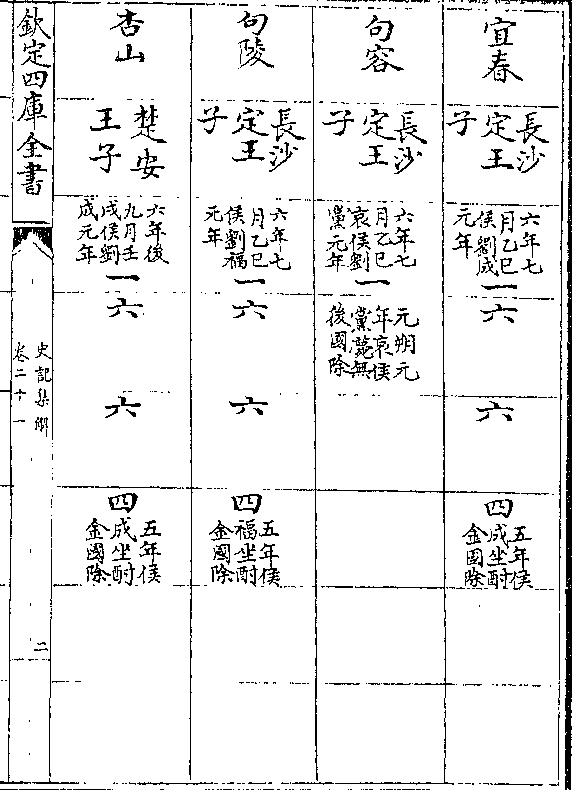 宜春
長沙
定王
子
六年七
月乙巳
侯劉成
元年
一
六
六
四
五年侯
成坐酎
金國除
句容
長沙
定王
子
六年七
月乙巳
哀侯劉
黨元年
一
元朔元
年哀侯
黨薨無
後國除
句陵
長沙
定王
子
六年七
月乙巳
侯劉福
元年
一
六
六
四
五年侯
福坐酎
金國除
杏山
楚安
王子
六年後
九月壬
戌侯劉
成元年
一
六
六
四
五年侯
成坐酎
金國除
欽定四庫全書
史記集解
卷二十一
二